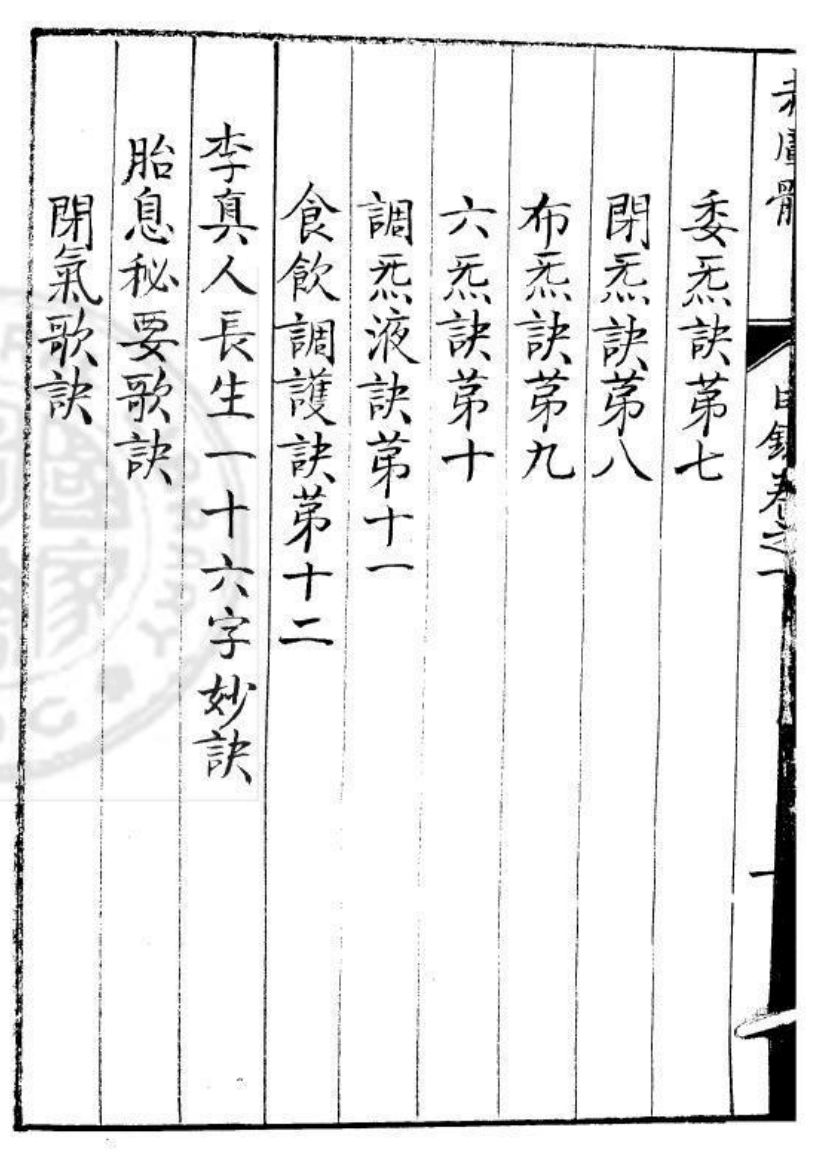 委炁訣第七
閉炁訣第八
布炁訣第九
六炁訣第十
調炁液訣第十一
食飲調護訣第十二
李真人長生一十六字妙訣
胎息秘要歌訣
閉氣歌訣